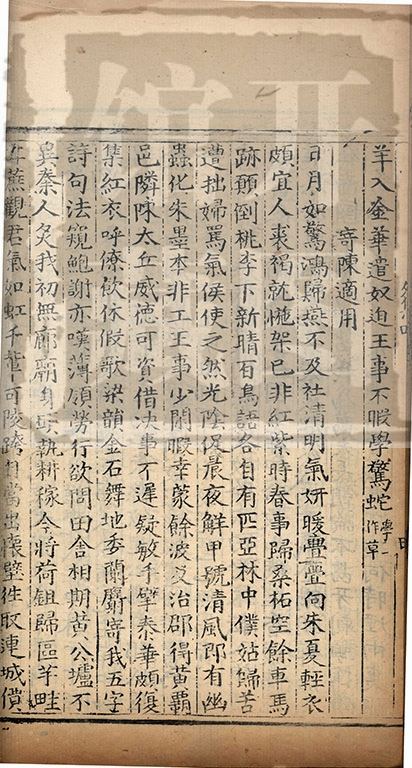 羊入金華遣奴迫王事不暇學驚蛇學一作草
寄陳適用
日月如驚鴻歸燕不及社清明氣妍暖亹亹向朱夏輕衣
頗宜人裘褐就椸架已非紅紫時春事歸桑柘空餘車馬
跡顛倒桃李下新晴百鳥語各自有匹亞林中僕姑歸苦
遭拙婦罵氣候使之然光陰促晨夜解甲號清風即有幽
蟲化朱墨本非工王事少閑暇幸蒙餘波及治郡得黃霸
邑隣陳太丘威德可資借决事不遲疑敏手擘泰華頗復
集紅衣呼僚飲休假歌梁韻金石舞地委蘭麝寄我五字
詩句法窺鮑謝亦嘆簿領勞行欲問田舍相期黃公壚不
異秦人炙我初無廊廟身願執耕稼今將荷鋤歸區芋畦
蕪觀君氣如虹千輩可陵跨自當出懷璧往取連城價